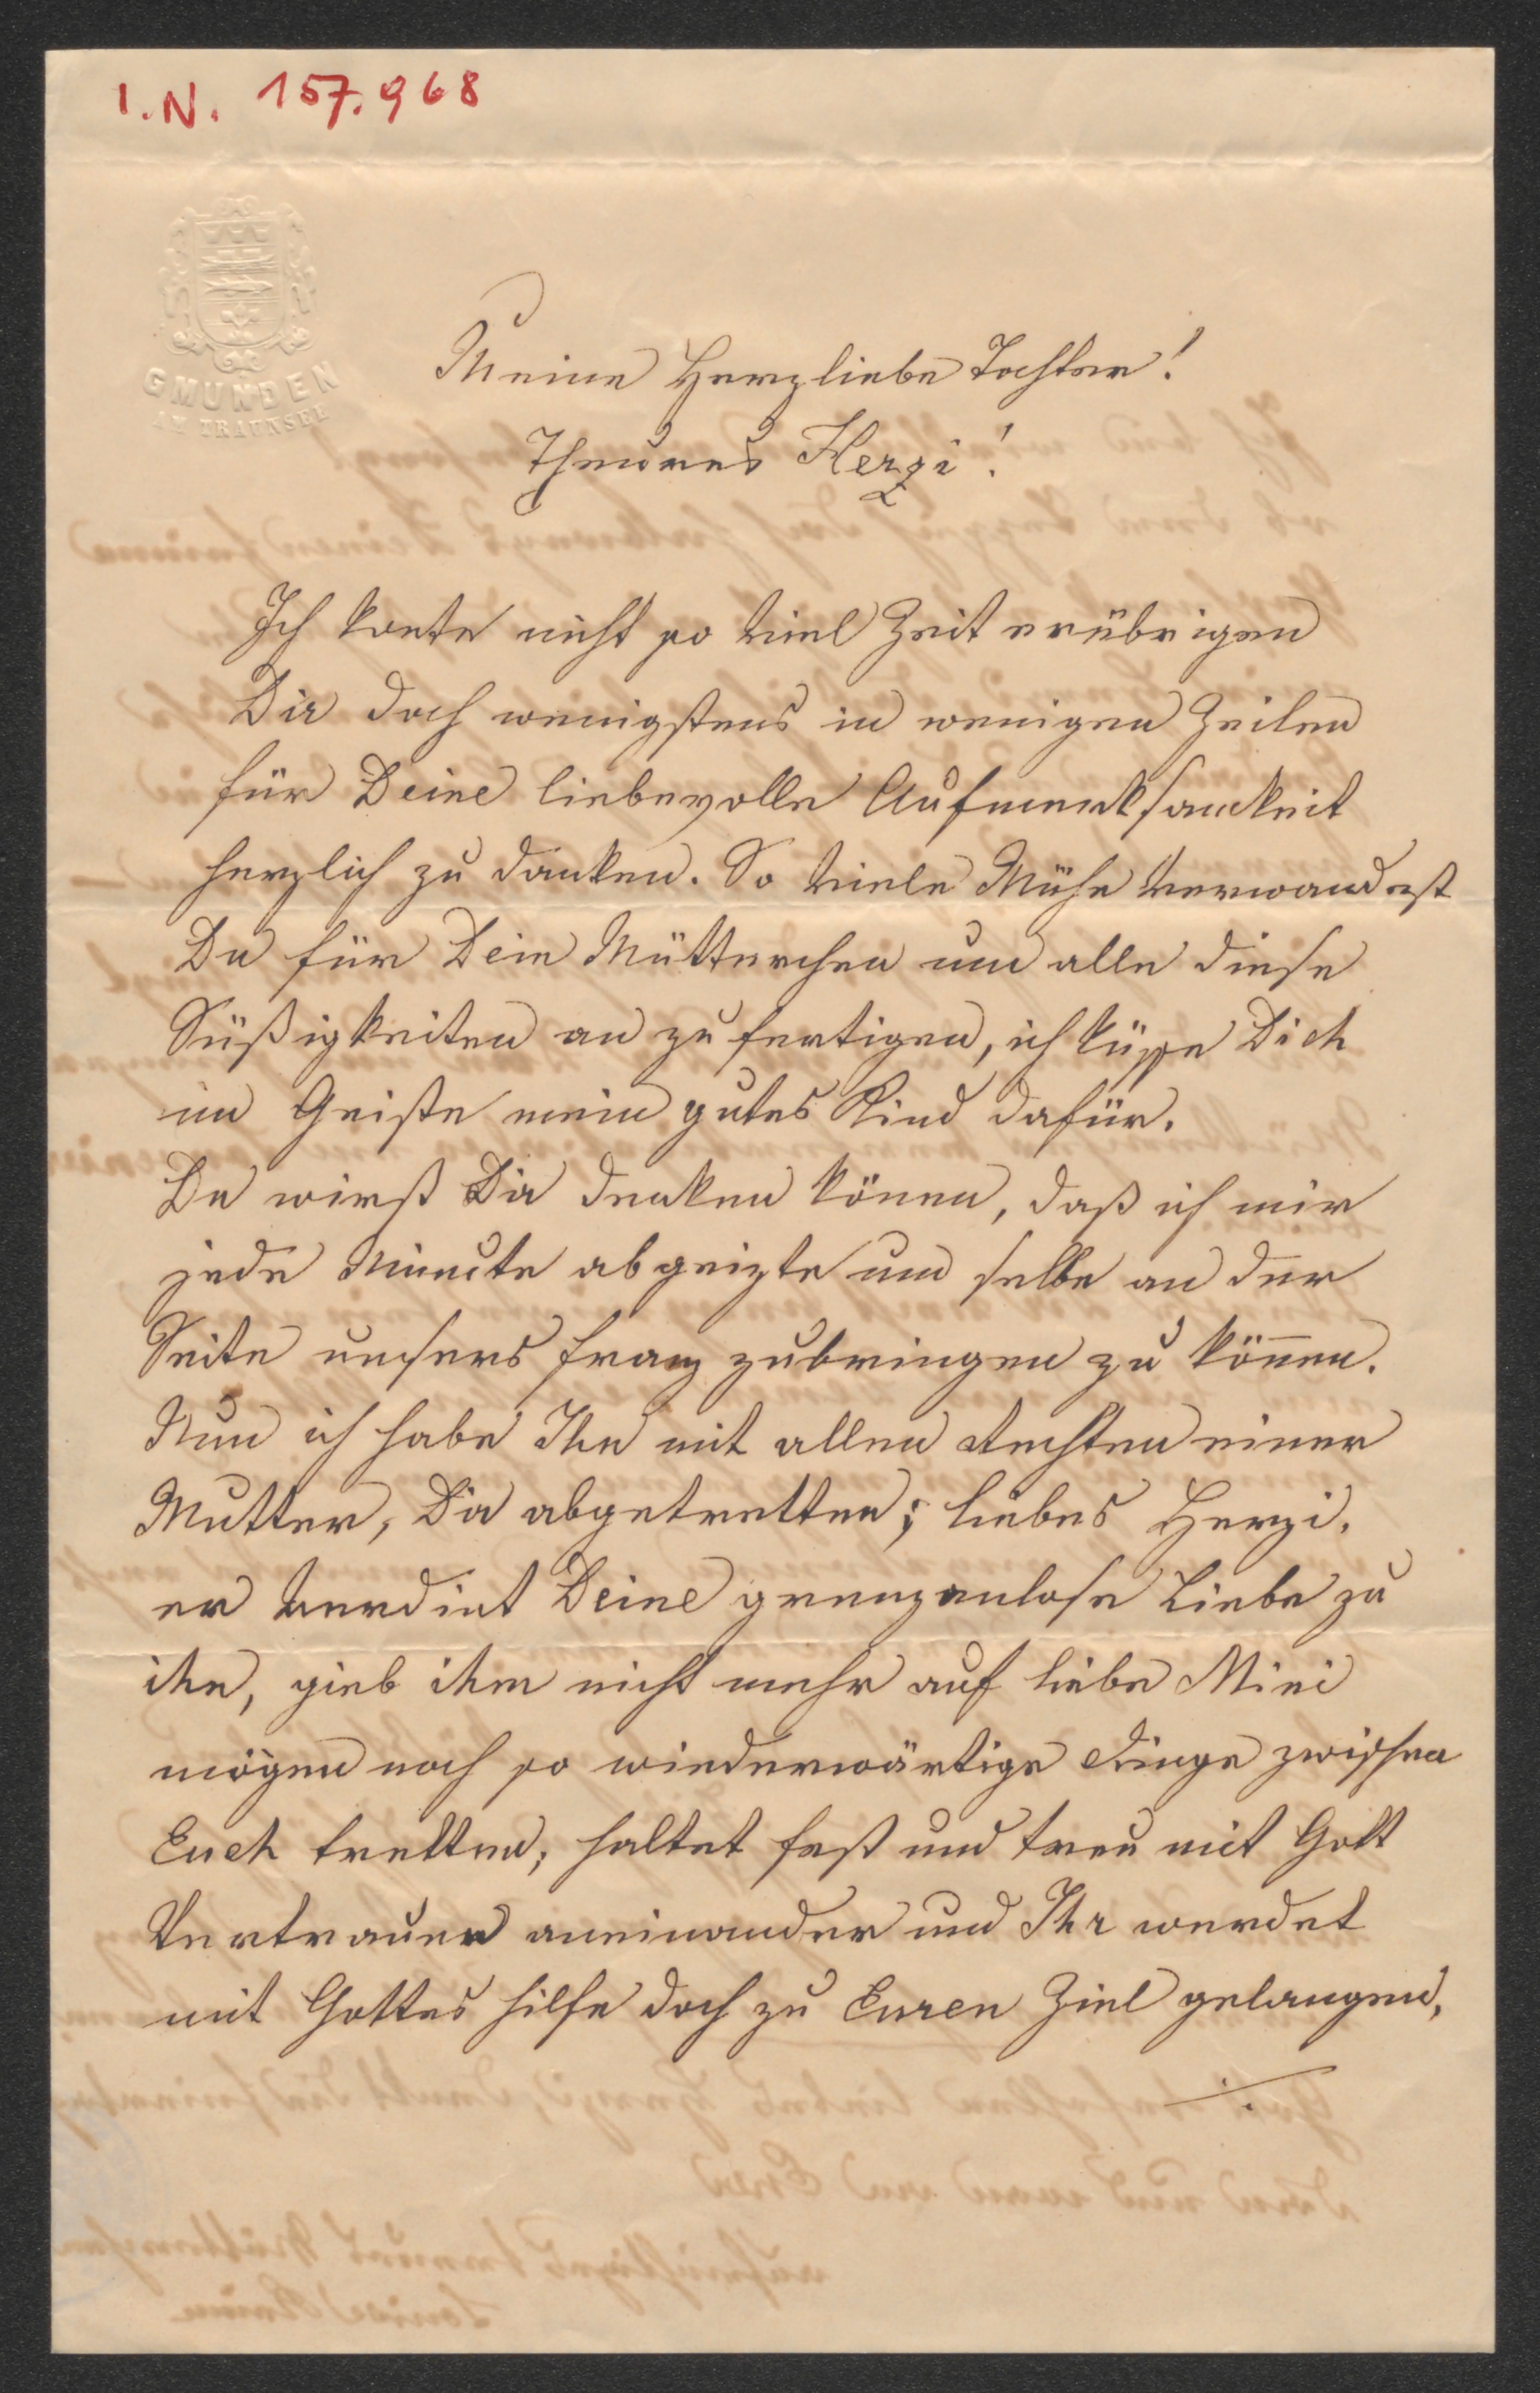 I.N. 157.968
GMUNDEN
AM TRAUNSEE
Meine Herzliebe Tochter!
Theures Herzi!
Ich konte nicht so viel Zeit erübrigen
Dir doch wenigstens in wenigen Zeilen
für Deine liebevolle Aufmerksamkeit
herzlich zu danken. So viele Mühe verwandest
Du für Dein Mütterchen um alle diese
Süßigkeiten an zu fertigen, ich küsse Dich
im Geiste mein gutes Kind dafür.
Du wirst Dir denken könen, daß ich mir
jede Minute abgeizte um selbe an der
Seite unsers Franz zubringen zu kön̅en.
Nun ich habe Ihn mit allen Rechten einer
Mutter, Dir abgetretten; liebes Herzi,
er verdint Deine grenzenlose Liebe zu
ihn, gieb ihm nicht mehr auf liebe Mini
mögen noch so wiederwärtige Dinge zwischen
Euch tretten; haltet fest und treu mit Gott
Vertrauen aneinander und Ihr werdet
mit Gottes Hilfe doch zu Euren Ziel gelangen,
./.